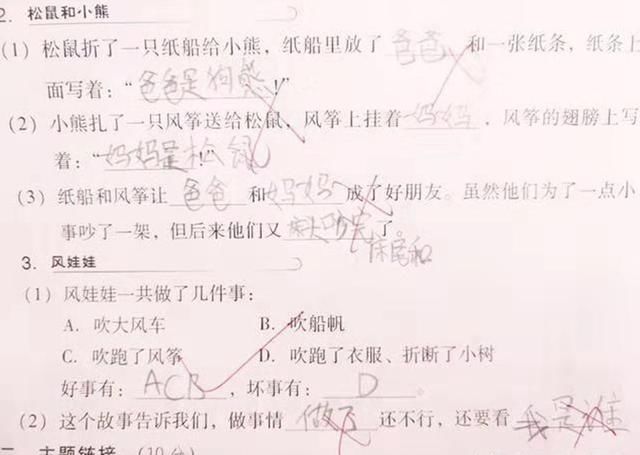 2. 松鼠和小熊
(1) 松鼠折了一只纸船给小熊，纸船里放了 爸爸 和一张纸条，纸条上
面写着：“爸爸是狗熊！”
(2) 小熊扎了一只风筝送给松鼠，风筝上挂着 妈妈 ，风筝的翅膀上写
着：“妈妈是松鼠！”
(3) 纸船和风筝让 爸爸 和 妈妈 成了好朋友。虽然他们为了一点小
事吵了一架，但后来他们又 床头吵完 了。
床尾和
3. 风娃娃
(1) 风娃娃一共做了几件事：
A. 吹大风车 B. 吹船帆
C. 吹跑了风筝 D. 吹跑了衣服、折断了小树
好事有： ACB ，坏事有： D 。
(2) 这个故事告诉我们，做事情 做了 还不行，还要看 我是谁
二、主题链接（10分）